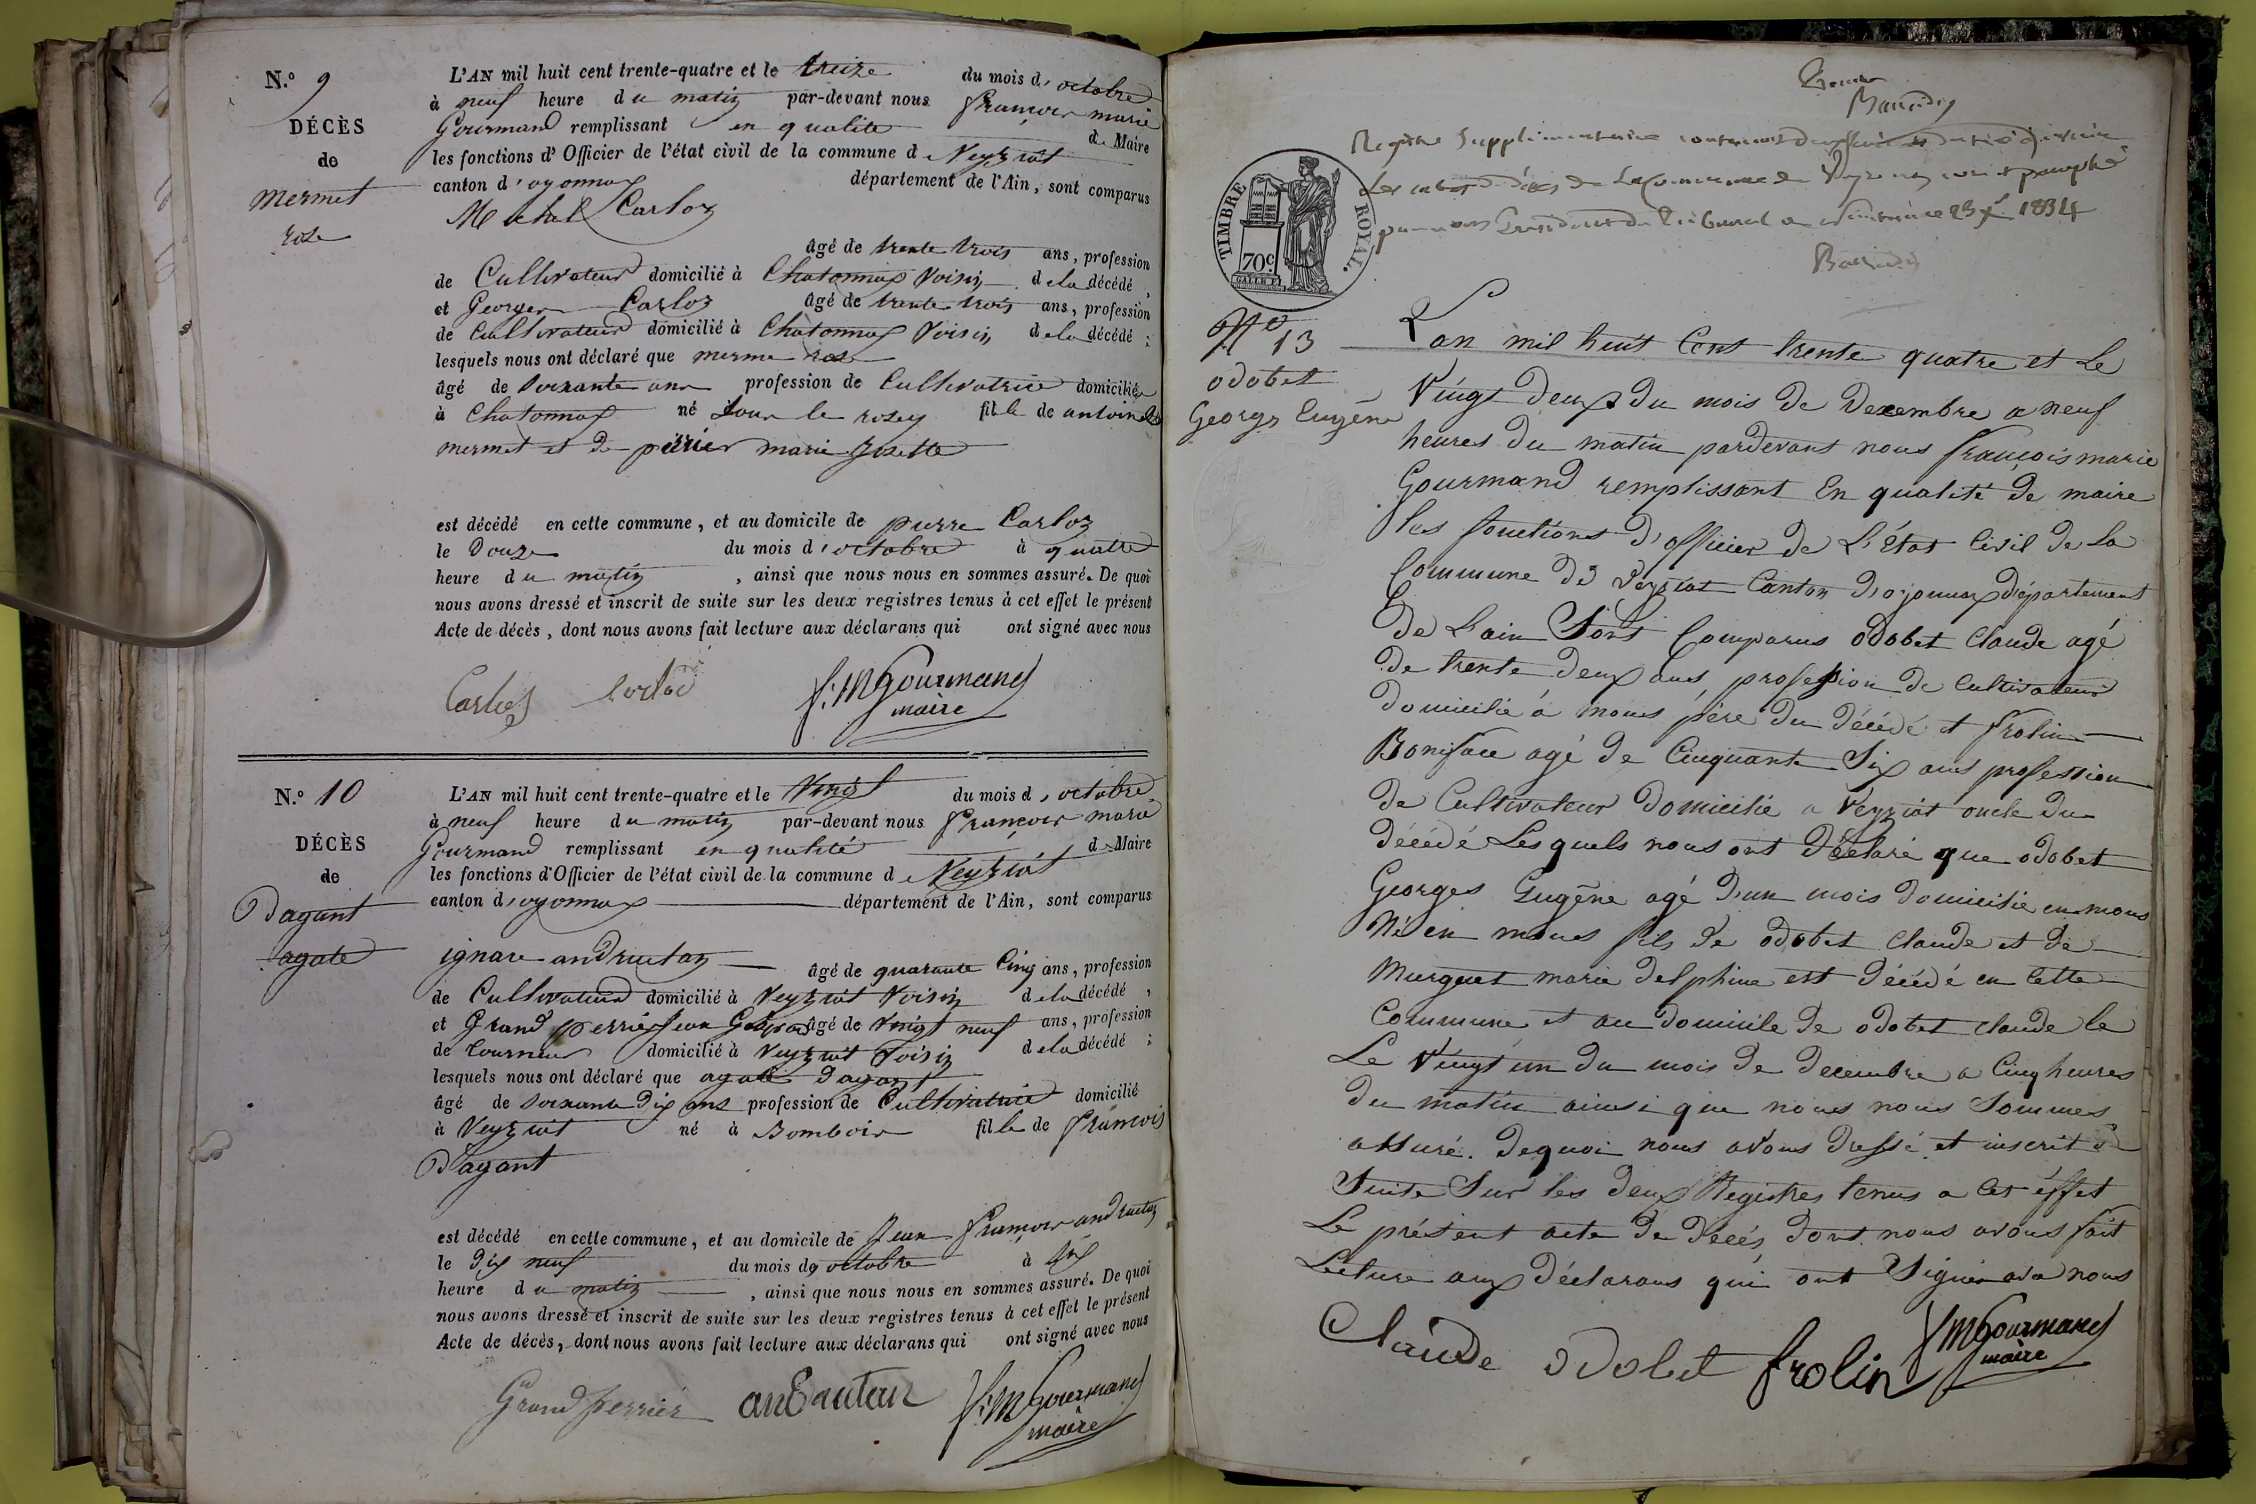 N.o 9
DÉCÈS
de
mermet
rose
L'AN mil huit cent trente-quatre et le treize du mois d'octobre
à neuf heure du matin par-devant nous François marie
Gourmand remplissant en qualité de Maire
les fonctions d'Officier de l'état civil de la commune d Veyziat
canton d'oyonnax département de l'Ain, sont comparus
Michel Carloz
âgé de trente trois ans, profession
de Cultivateur domicilié à Chatonnax Voisin de la décédé,
et Georges Carloz âgé de trente trois ans, profession
de Cultivateur domicilié à Chatonnax Voisin de la décédé ;
lesquels nous ont déclaré que merme rose
âgé de Soixante ans profession de Cultivatrice domicilié
à Chatonnax né fille de antoine
mermet et de perrier marie Josette
est décédé en cette commune, et au domicile de pierre Carloz
le Douze du mois d'octobre à quatre
heure du matin, ainsi que nous nous en sommes assuré. De quoi
nous avons dressé et inscrit de suite sur les deux registres tenus à cet effet le présent
Acte de décès, dont nous avons fait lecture aux déclarans qui ont signé avec nous
F: M Gourmand
maire
N.o 10
DÉCÈS
de
Dagant
agate
L'AN mil huit cent trente-quatre et le Vingt du mois d'octobre
à neuf heure du matin par-devant nous François marie
Gourmand remplissant en qualité de Maire
les fonctions d'Officier de l'état civil de la commune d Veyziat
canton d'oyonnax département de l'Ain, sont comparus
âgé de quarante Cinq ans, profession
de Cultivateur domicilié à Veyziat Voisin de la décédé,
et Grand perrier Jean âgé de Vingt neuf ans, profession
de tourneur domicilié à Veyziat Voisin de la décédé ;
lesquels nous ont déclaré que agate Dagant
âgé de Soixante Dix ans profession de Cultivatrice domicilié
à Veyziat né à Bombois fille de François
Dagant
est décédé en cette commune, et au domicile de Jean François
le Dix neuf du mois d octobre à Six
heure du matin, ainsi que nous nous en sommes assuré. De quoi
nous avons dressé et inscrit de suite sur les deux registres tenus à cet effet le présent
Acte de décès, dont nous avons fait lecture aux déclarans qui ont signé avec nous
Grand perrier
F: M Gourmand
maire
Registre Supplémentaire
Les actes de décès de la Commune de
1834
TIMBRE ROYAL.
70c
No 13
odobet
Georges Eugène
L'an mil huit Cent trente quatre et Le
Vingt Deux du mois de Decembre a neuf
heures du matin pardevant nous françois marie
Gourmand remplissant En qualité de maire
les fonctions d'officier de L'État Civil de La
Commune de Veyziat Canton d'oyonnax département
de L'ain Sont Comparus odobet Claude agé
de trente deux ans profession de Cultivateur
domicilié à mons père du décédé et frolin
Boniface agé de Cinquante Six ans profession
de Cultivateur domicilié a Veyziat oncle du
décédé Lesquels nous ont Déclaré que odobet
Georges Eugène agé d'un mois domicilié en mons
Né en mons fils de odobet Claude et de
Murguet marie delphine est décédé en Cette
Commune et au domicile de odobet claude le
Le Vingt un du mois de decembre a Cinq heures
du matin ainsi que nous nous Sommes
assuré. Dequoi nous avons dressé et inscrit de
Suite Sur les deux Registres tenus a Cet éffet
Le présent acte de décés dont nous avons fait
Lecture aux déclarans qui ont Signés avec nous
Claude odobet frolin
F M Gourmand
maire